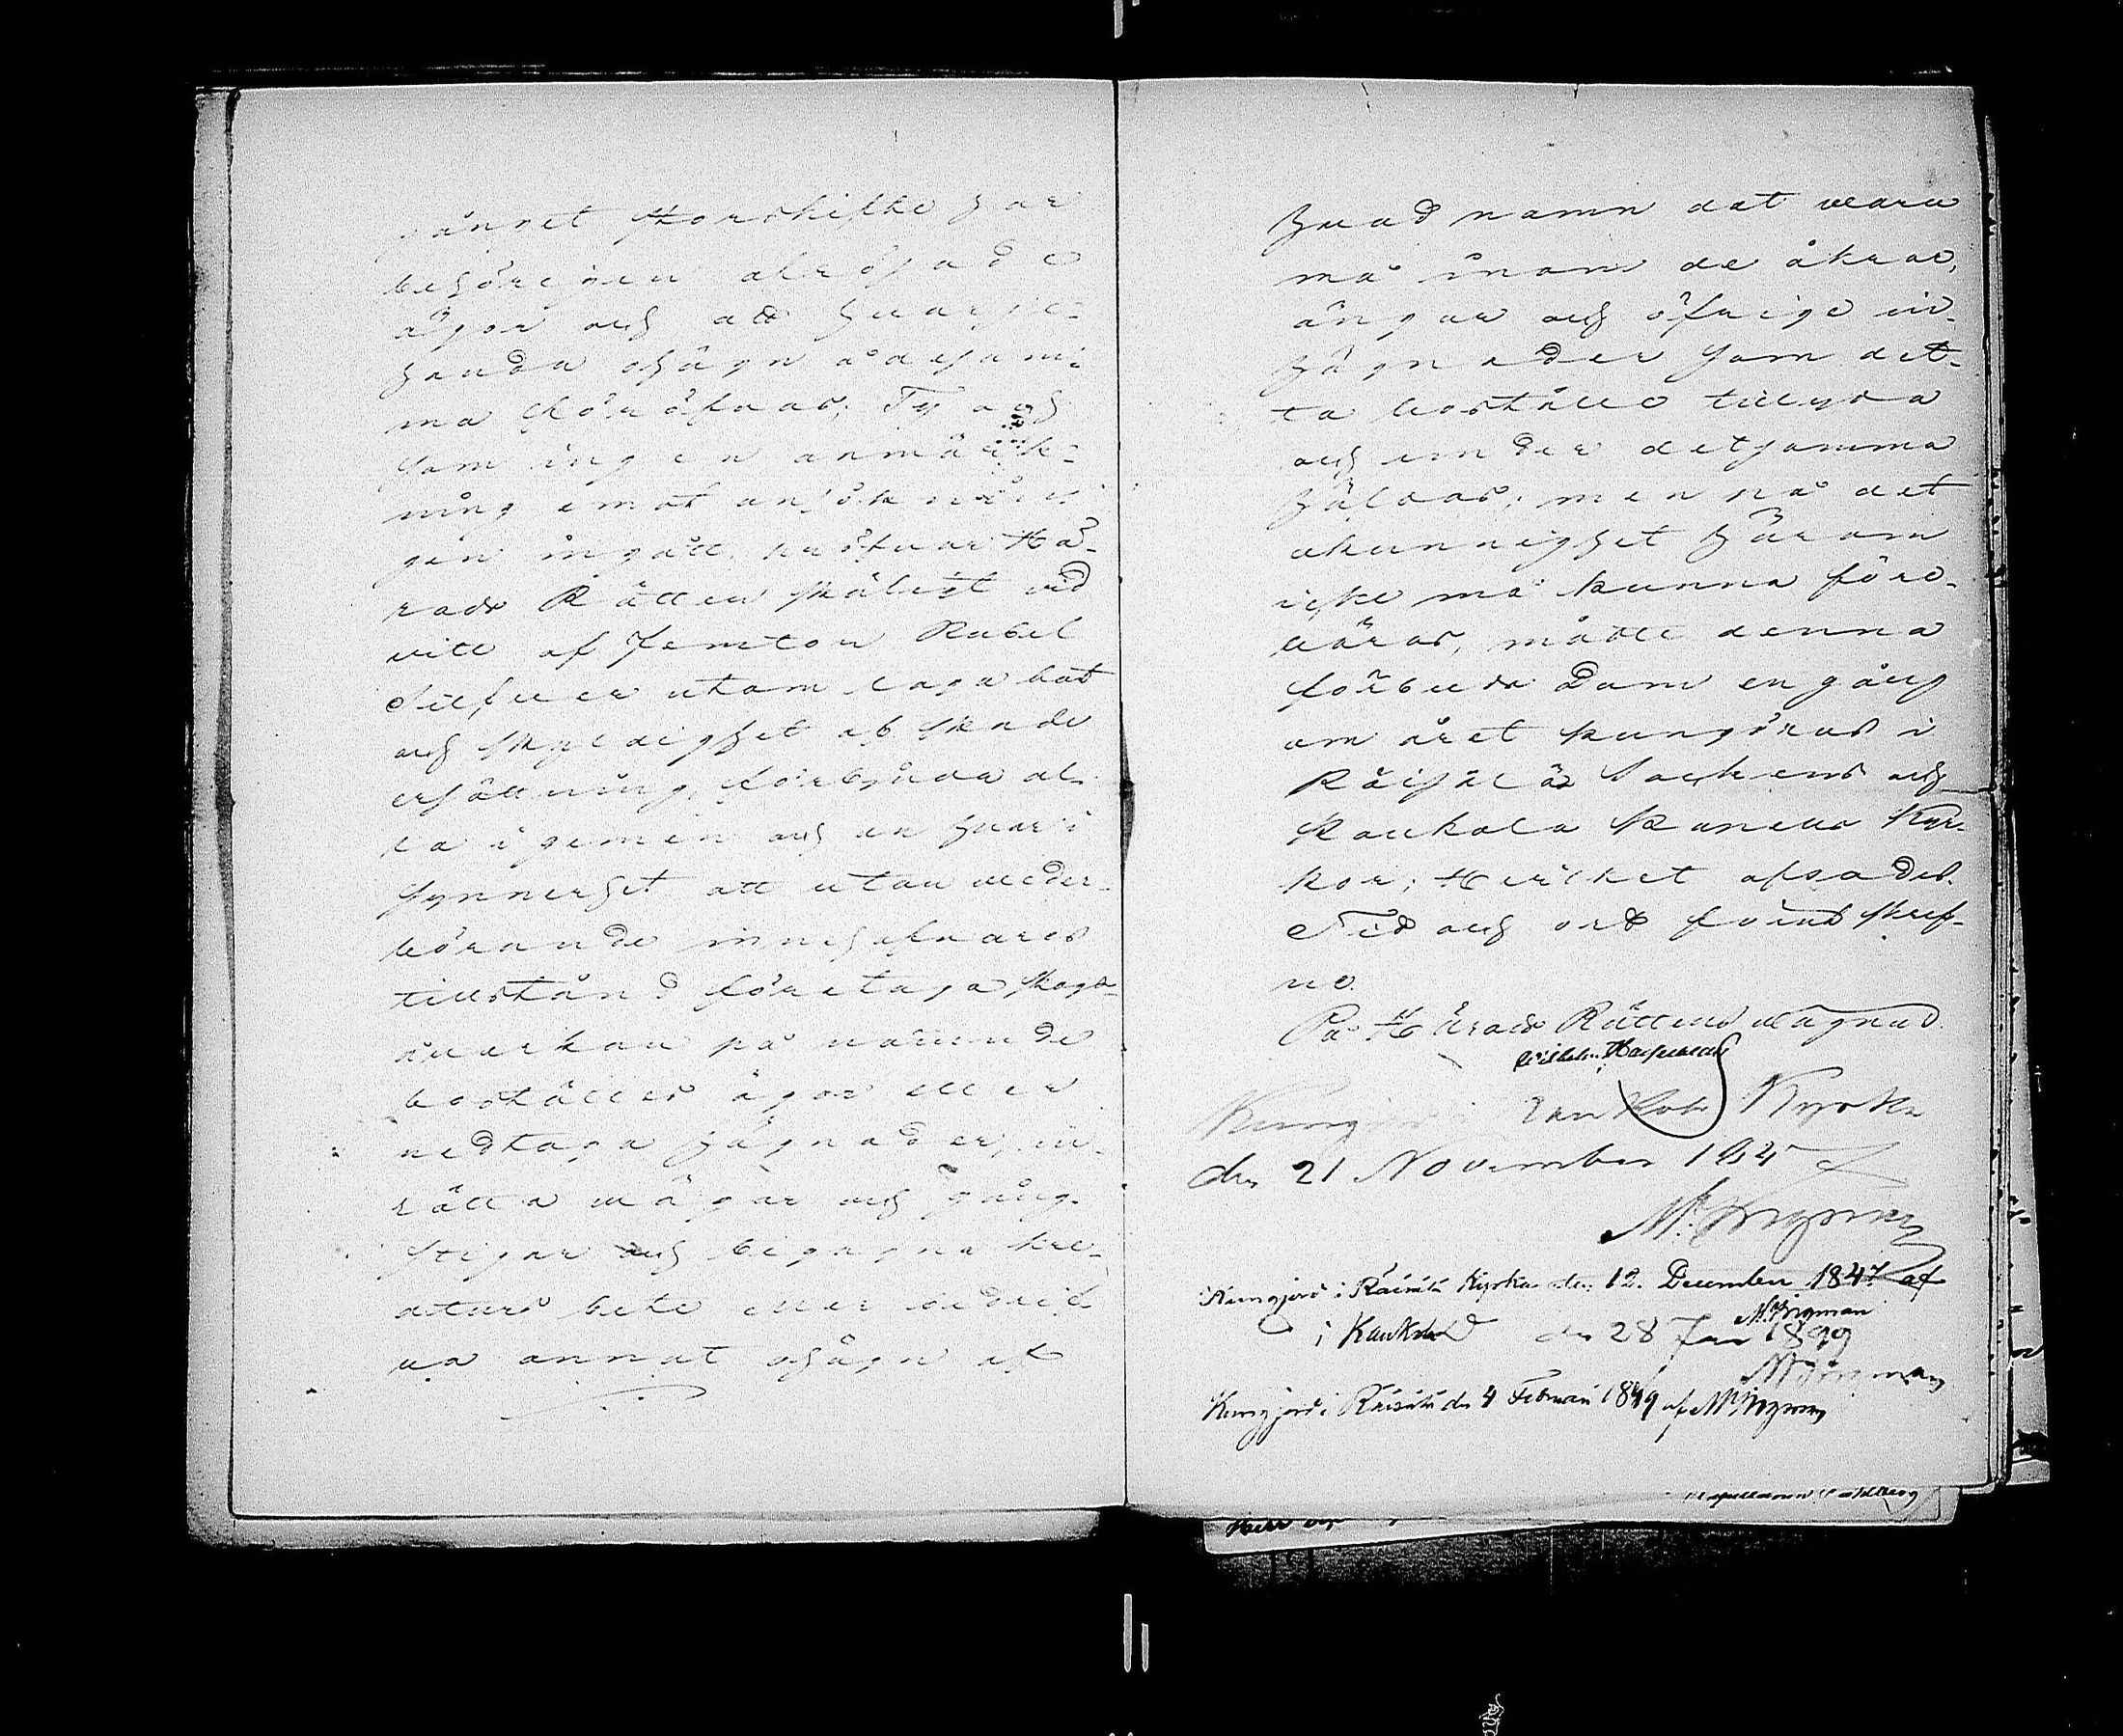 gånget Storskifte har
behörigen afrösade
ägor och att hvarje-
handa ohägn därsam-
ma föröfvas; Ty och
som ingen anmärk-
ning emot ansöknin-
gen ingått, pröfvar Hä-
rads Rätten skäligt vid
vite af Femton Rubel
Silfver utom laga bot
och skyldighet af skade
ersättning, förbjuda al-
la i gemen och en hvar i
synnerhet att utan veder-
börande innehafvares
tillstånd företaga skogs-
åverkan på nämnde
boställes ägor eller
nedtaga hägnader, in-
rätta vägar och gång-
stigar och begagna kre-
aturs bete eller bedrif-
va annat ohägn af
hvad namn det vara
må inom de åkrar,
ängar och öfrige in-
hägnader som det-
ta boställe tillhöra
och under detsamma
hålles; men på det
okunnighet härom
icke må kunna före-
bäras, måtte denna
förbuds Dom en gång
om året kungöras i
Räisälä Sockens och
Kaukola Kapells Kyr-
kor; Hvilket afsades.
Tid och ort förut skref-
ne.
På Härads Rättens vägnar.
Wilhelm
Kungjord i Kaukola Kyrka
den 21 November 1847
M. Brgman
Kungjord i Räisälä Kyrka den 12. December 1847 af
M. Brgman
i Kaukola den 28 Jan 1849
M. Brgman
Kungjord i Räisälä den 4 Februari 1849 af M. Brgman
Kapellanen
Herr